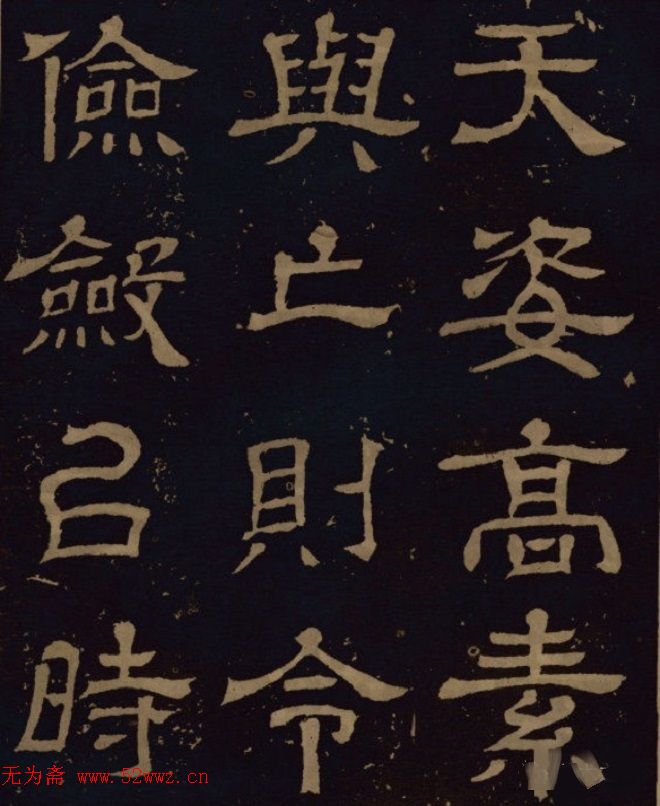 天姿高素
與亡則令
儉斂㠯時
无为斋 www.52wwz.cn